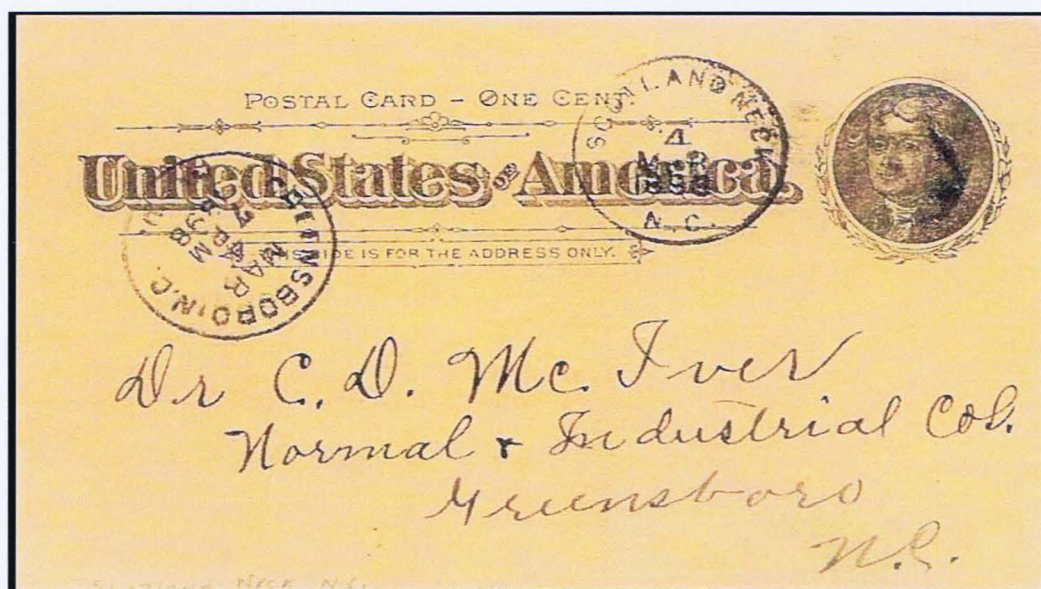 POSTAL CARD - ONE CENT.
United States of America.
THIS SIDE IS FOR THE ADDRESS ONLY.
SCOTLAND NECK
4
MAR
1898
N.C.
GREENSBORO N.C.
MAR
7
PM
1898
Dr C. D. Mc. Iver
Normal & Industrial Col.
Greensboro
N.C.
SCOTLAND NECK N.C.